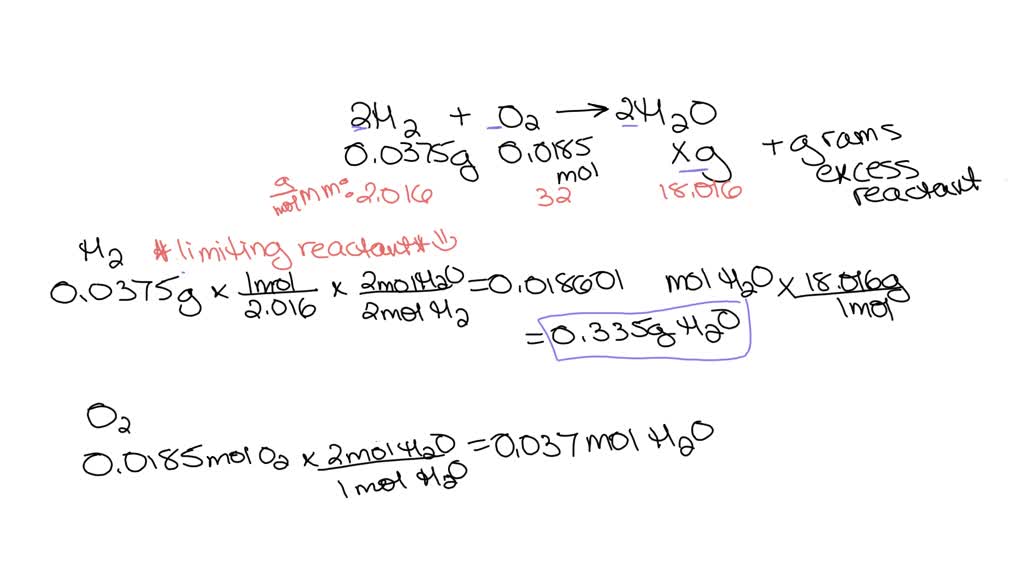 2H₂ + O₂ → 2H₂O
0.0375g 0.0185 mol xg + grams excess reactant
g/mol mm: 2.016 32 18.016
H₂ *limiting reactant*
0.0375g × 1mol/2.016 × 2mol H₂O/2mol H₂ = 0.018601 mol H₂O × 18.016g/1mol
= 0.335g H₂O
O₂
0.0185 mol O₂ × 2mol H₂O/1mol H₂O = 0.037 mol H₂O